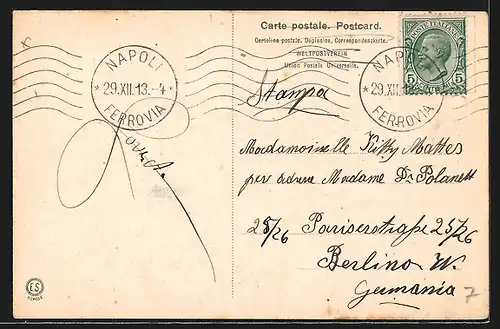 Carte postale. Postcard.
Cartolina postale. Dopisnice. Correspondenzkarte.
WELTPOSTVEREIN
Union Postale Universelle.
NAPOLI
29.XII.13.-4
FERROVIA
NAPOLI
29.XII.1
FERROVIA
POSTE ITALIANE
5 5
Stampa
Mademoiselle Kitty Mattes
per adresse Madame Dr. Polanett
25/26 Pariserstraße 25/26
Berlino W.
Germania
7
ES